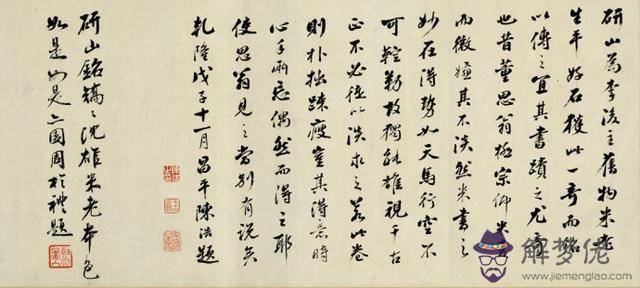 研山為李後主舊物米老
生平好石獲此一奇而銘
以傳之宜其書蹟之尤奇
也昔董思翁極宗仰米書
而微嫌其不淡然米書之
妙在得勢如天馬行空不
可羈勒故獨能雄視千古
正不必徒以淡求之若此卷
則朴拙疎瘦豈其得意時
心手兩忘偶然而得之耶
使思翁見之當別有說矣
乾隆戊子十一月昌平陳浩題
研山銘鎬鎬沈雄米老本色
如是如是 周於禮題
解梦佬
www.jiemenglao.com